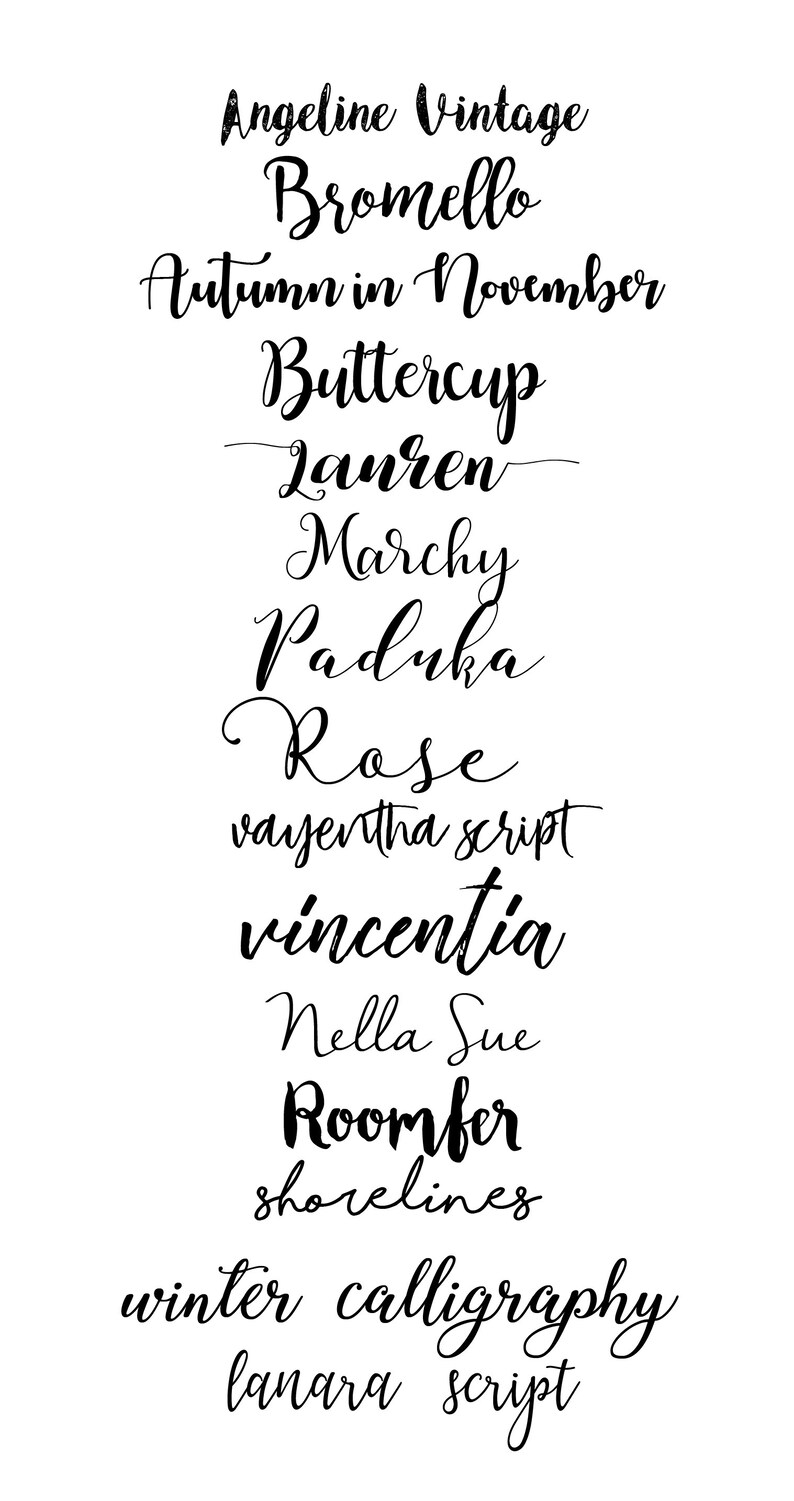 Angeline Vintage
Bromello
Autumn in November
Buttercup
Lauren
Marchy
Paduka
Rose
vayentha script
vincentia
Nella Sue
Roomfer
shorelines
winter calligraphy
lanara script